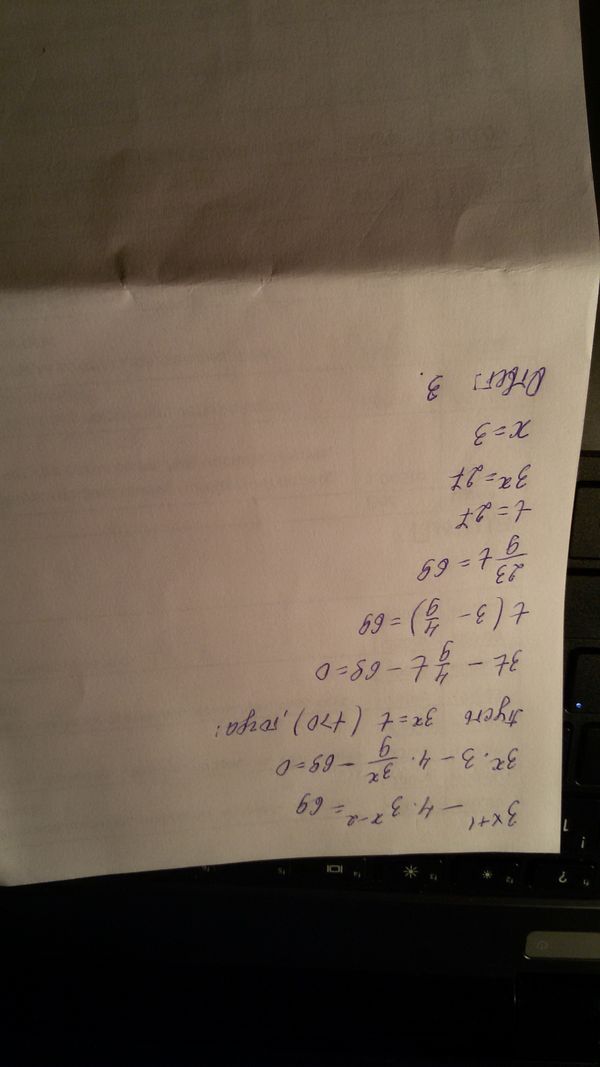 3x+1 − 4·3 x−2 = 69
3x·3 − 4· 3x/9 − 69=0
Пусть 3x=t (t>0), тогда:
3t − 4/9 t − 69=0
t(3 − 4/9) = 69
23/9 t = 69
t = 27
3x = 27
x=3
Ответ: 3.